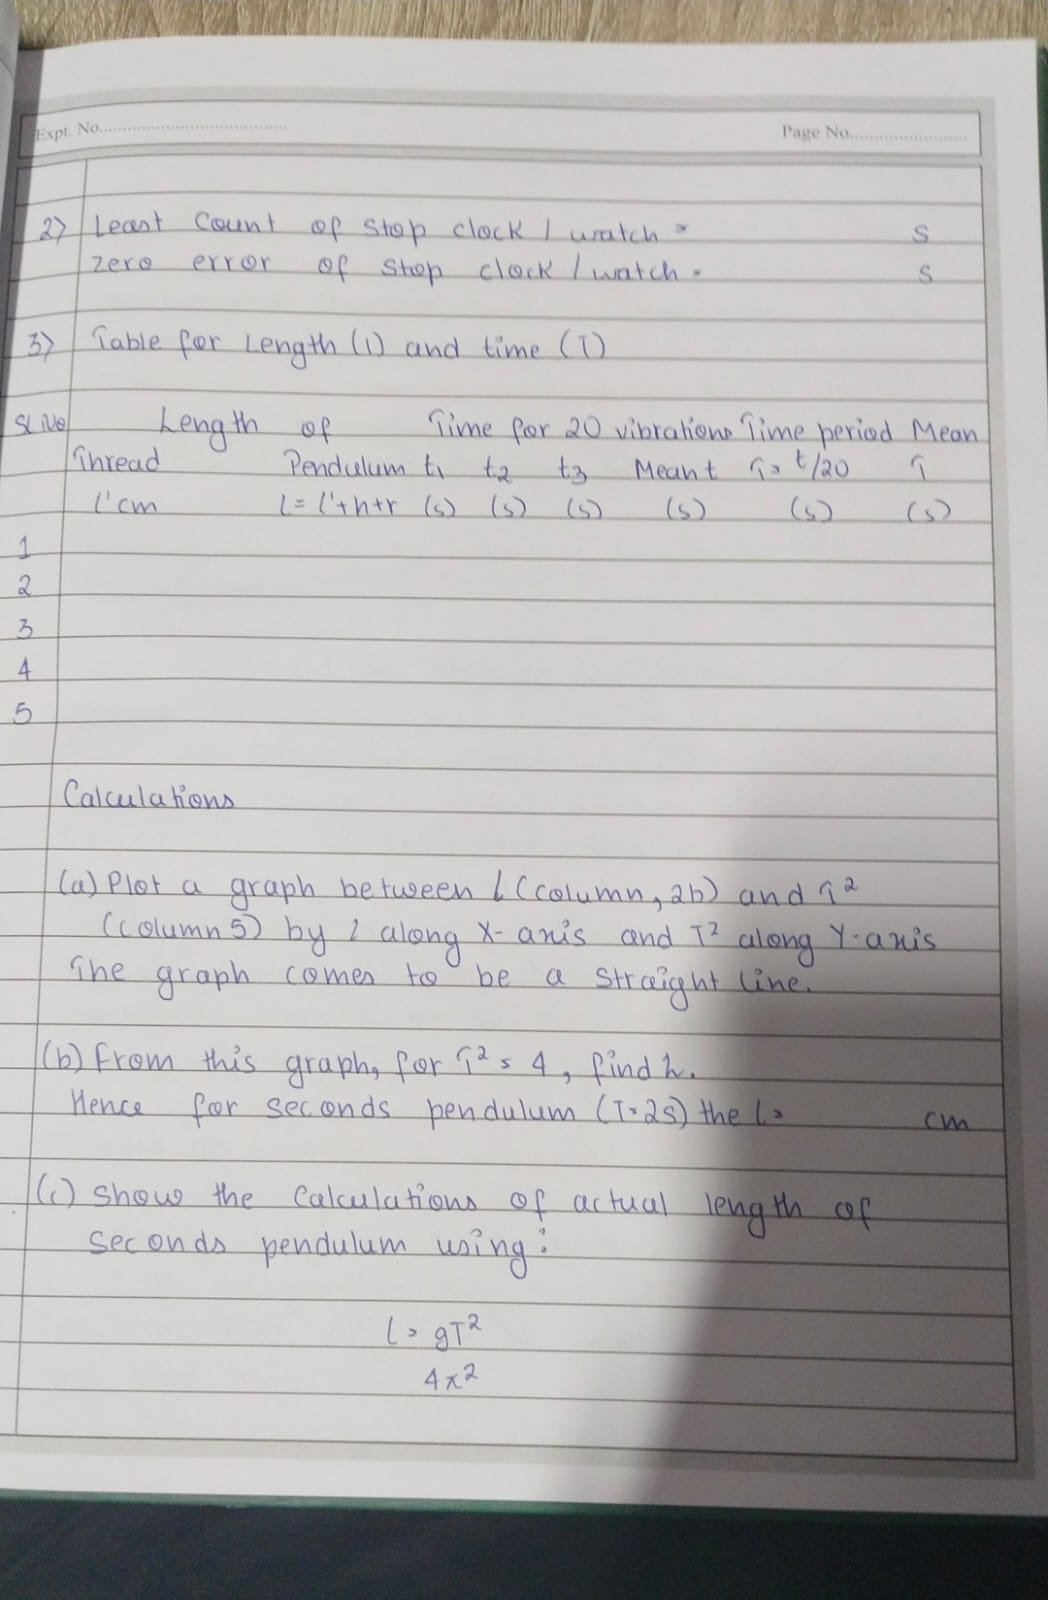 Expt. No.
Page No.
2) Least Count of stop clock / watch = s
zero error of stop clock / watch = s
3) Table for Length (l) and time (T)
Sl No Length of Time for 20 vibrations Time period Mean
Thread Pendulum t1 t2 t3 Mean t T= t/20 T
l'cm l= l'+h+r (s) (s) (s) (s) (s) (s)
1
2
3
4
5
Calculations
(a) Plot a graph between l (column, 2b) and T²
(column 5) by l along X-axis and T² along Y-axis
The graph comes to be a straight line.
(b) From this graph, for T² = 4, find
Hence for seconds pendulum (T=2s) the l= cm
(c) Show the Calculations of actual length of
seconds pendulum using:
l= gT²
4π²